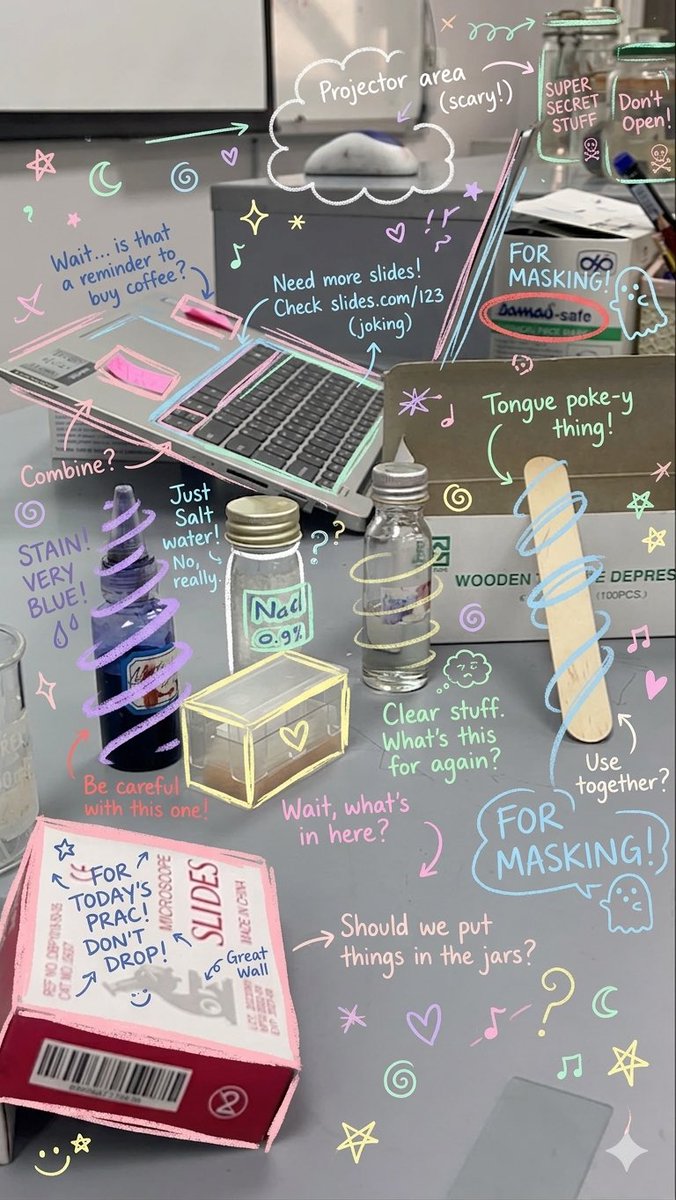 Projector area
(scary!)
SUPER
SECRET
STUFF
Don't
Open!
Wait... is that
a reminder to
buy coffee?
Need more slides!
Check slides.com/123
(joking)
FOR
MASKING!
-safe
Combine?
Tongue poke-y
thing!
STAIN!
VERY
BLUE!
Just
Salt
water!
No,
really.
NaCl
0.9%
WOODEN
DEPRES
(100PCS.)
Clear stuff.
What's this
for again?
Be careful
with this one!
Wait, what's
in here?
Use
together?
FOR
MASKING!
FOR
TODAY'S
PRAC!
DON'T
DROP!
MICROSCOPE
SLIDES
MADE IN CHINA
Great
Wall
Should we put
things in the jars?
2